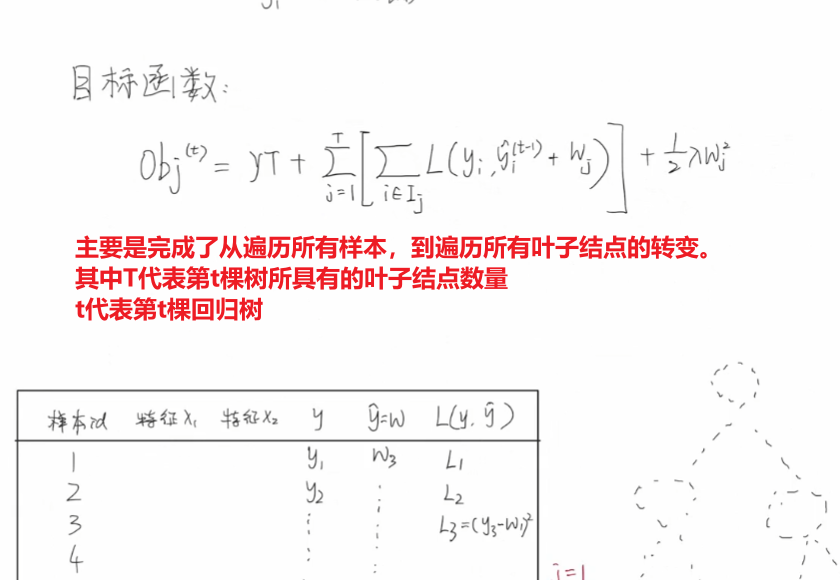 目标函数:
Obj^(t) = γT + Σ_{j=1}^{T} [ Σ_{i∈I_j} L(y_i, ŷ_i^(t-1) + W_j) ] + 1/2 λW_j^2
主要是完成了从遍历所有样本，到遍历所有叶子结点的转变。
其中T代表第t棵树所具有的叶子结点数量
t代表第t棵回归树
样本id 特征X₁ 特征X₂ y ŷ=W L(y, ŷ)
1 y₁ W₃ L₁
2 y₂ ⋮ L₂
3 ⋮ ⋮ L₃=(y₃-W₁)²
4 ⋮ ⋮
j=1